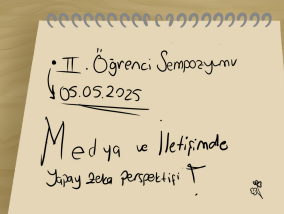 • II. Öğrenci Sempozyumu
05.05.2025
Medya ve İletişimde
Yapay zeka perspektifi